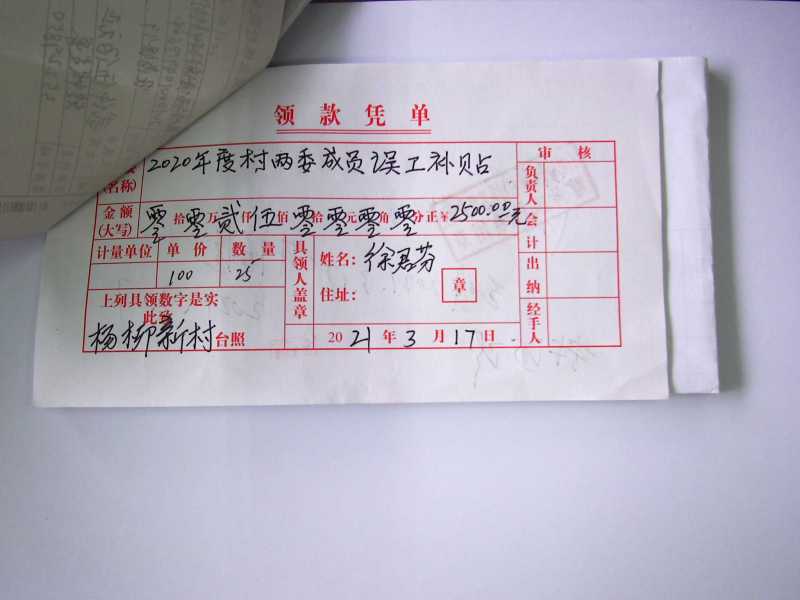 领款凭单
2020年度村两委成员误工补贴
审核
(名称)
负责人
金额(大写) 零拾零万贰仟伍佰零拾零元零角零分正¥2500.00元
会计
计量单位 单价 数量
具领人盖章
姓名: 徐君芬
100 25
住址:
章
出纳
上列具领数字是实
此致
经手人
杨柳新村台照
2021年3月17日